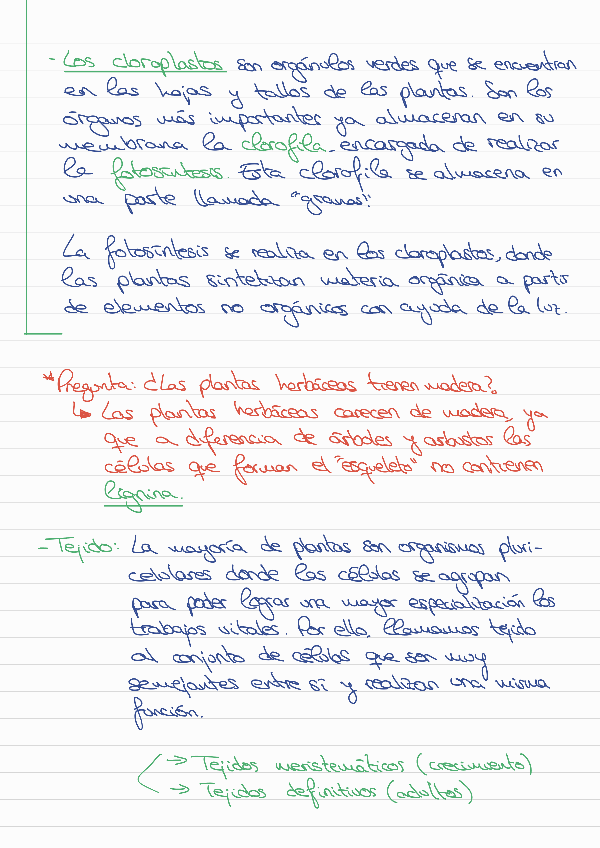 - Los cloroplastos son orgánulos verdes que se encuentran
en las hojas y tallos de las plantas. Son los
órganos más importantes ya almacenan en su
membrana la clorofila, encargada de realizar
la fotosíntesis. Esta clorofila se almacena en
una parte llamada "granos".
La fotosíntesis se realiza en los cloroplastos, donde
las plantas sintetizan materia orgánica a partir
de elementos no orgánicos con ayuda de la luz.
* Pregunta: ¿Las plantas herbáceas tienen madera?
↳ Las plantas herbáceas carecen de madera, ya
que a diferencia de árboles y arbustos las
células que forman el "esqueleto" no contienen
lignina.
- Tejido: La mayoría de plantas son organismos pluri-
celulares donde las células se agrupan
para poder lograr una mayor especialización los
trabajos vitales. Por ello, llamamos tejido
al conjunto de células que son muy
semejantes entre sí y realizan una misma
función.
→ Tejidos meristemáticos (crecimiento)
→ Tejidos definitivos (adultos)